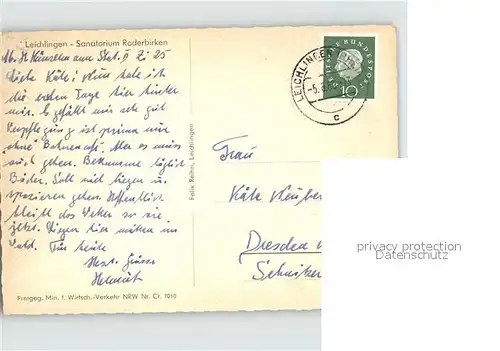 Leichlingen - Sanatorium Roderbirken
Abs. H. Künzelmann Stat. II Zi 25
Liebe Käte! Nun habe ich
die ersten Tage hier hinter
mir. Es gefällt mir sehr gut
Verpflegung ist prima nur
"ohne" Bohnencafé. Aber es muss
auch gehen. Bekomme täglich
Bäder. Soll viel liegen u.
spazieren gehen. Hoffentlich
bleibt das Wetter so wie
jetzt. Liegen hier mitten im
Wald. Für heute
Herzl. Grüsse
Helmut
Freigeg. Min. f. Wirtsch.-Verkehr NRW Nr. Cr. 7010
Felix Reihn, Leichlingen
LEICHLINGEN
-5.
c
DEUTSCHE BUNDESPOST
10
Frau
Käte Neuber
Dresden
privacy protection
Datenschutz